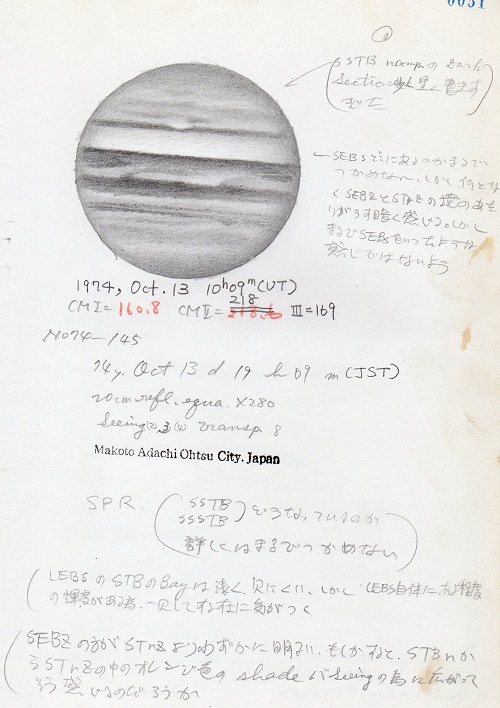 0051
①
SSTB n comp. の dark
section
SEBsがどこにあるのかまるで
つかめない、しかし 何とな
くSEBZとSTrZの境のあた
りがうす暗く感じる。しかし
まるでSEBsといったような
感じではないよう
1974, Oct. 13 10h09m(UT)
218
CMI=160.8 CMII=218.6 III=169
No74-145
74y. Oct 13 d 19 h 09 m (JST)
20cm refl. equa. X280
Seeing(2) 3(4) transp. 8
Makoto Adachi Ohtsu City. Japan
SPR. SSTB
SSSTB どうなっているのか
詳しくはまるでつかめない
LEBSのSTBのBayは淡く、見にくい、しかし LEBS自体にある程度
の輝度がある為、一見して存在に気がつく
SEBZの方がSTrZよりわずかに明るい、もしかすると、STBnか
らSTrZの中のオレンジ色のshadeがseeingの為に広がって
そう感じるのだろうか